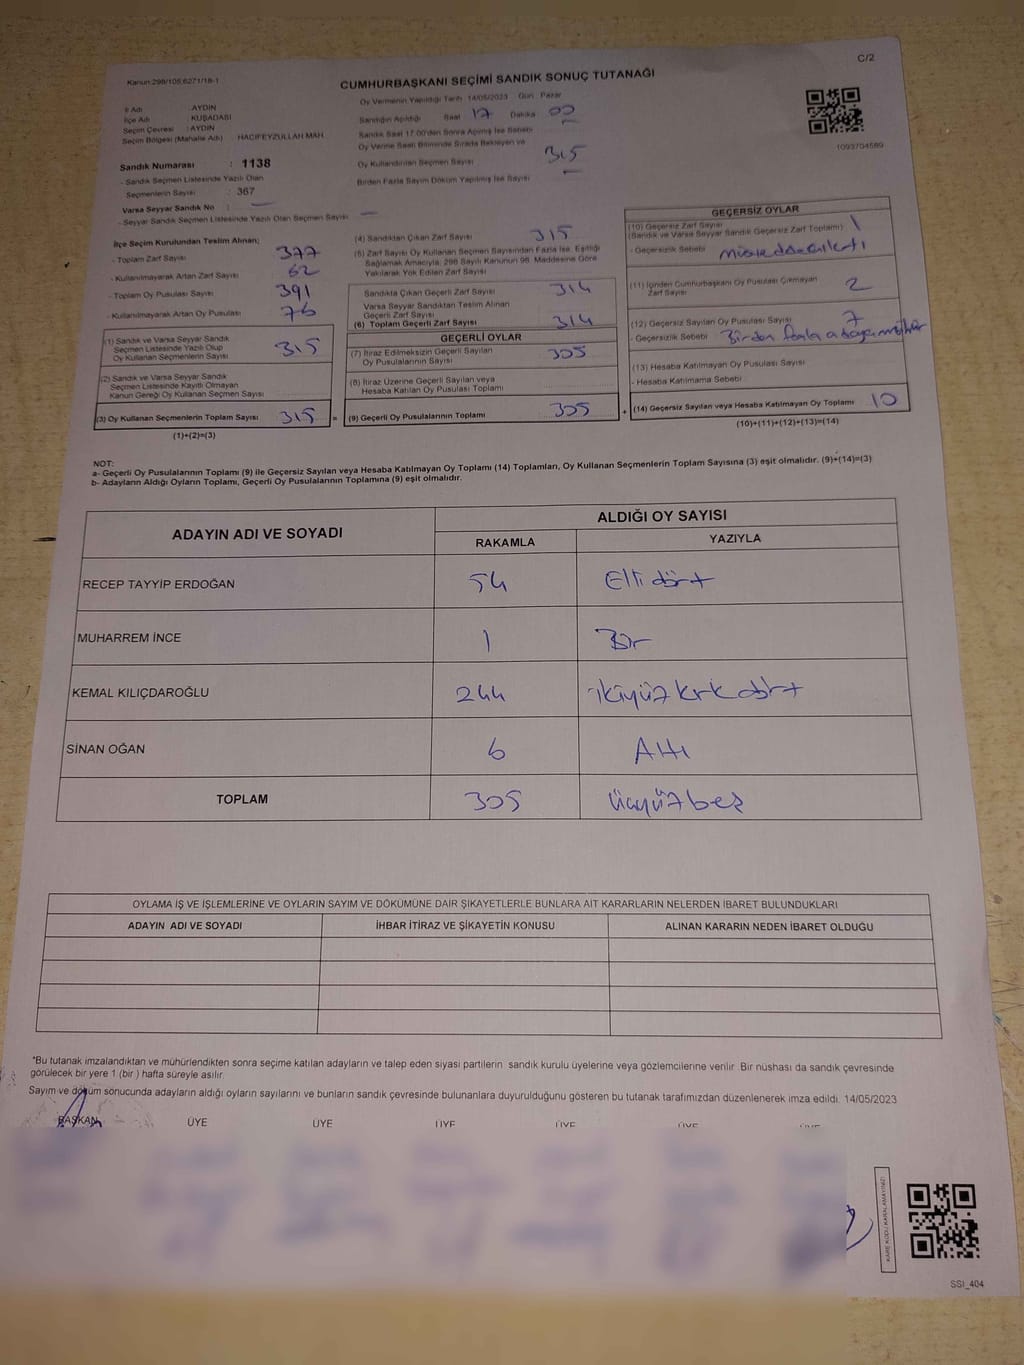 Kanun:298/105;6271/18-1
C/2
CUMHURBAŞKANI SEÇİMİ SANDIK SONUÇ TUTANAĞI
İl Adı : AYDIN
İlçe Adı : KUŞADASI
Seçim Çevresi : AYDIN
Seçim Bölgesi (Mahalle Adı) : HACIFEYZULLAH MAH.
Sandık Numarası : 1138
- Sandık Seçmen Listesinde Yazılı Olan
Seçmenlerin Sayısı : 367
Varsa Seyyar Sandık No : —
- Seyyar Sandık Seçmen Listesinde Yazılı Olan Seçmen Sayısı —
Oy Vermenin Yapıldığı Tarih 14/05/2023 Gün : Pazar
Sandığın Açıldığı Saat 17 Dakika 00
Sandık Saat 17:00'den Sonra Açılmış İse Sebebi —
Oy Verme Saati Bitiminde Sırada Bekleyen ve
Oy Kullandırılan Seçmen Sayısı 315
Birden Fazla Sayım Döküm Yapılmış İse Sayısı —
1093704589
İlçe Seçim Kurulundan Teslim Alınan;
- Toplam Zarf Sayısı 377
- Kullanılmayarak Artan Zarf Sayısı 62
- Toplam Oy Pusulası Sayısı 391
- Kullanılmayarak Artan Oy Pusulası 76
(1) Sandık ve Varsa Seyyar Sandık
Seçmen Listesinde Yazılı Olup
Oy Kullanan Seçmenlerin Sayısı 315
(2) Sandık ve Varsa Seyyar Sandık
Seçmen Listesinde Kayıtlı Olmayan
Kanun Gereği Oy Kullanan Seçmen Sayısı
(3) Oy Kullanan Seçmenlerin Toplam Sayısı 315 =
(1)+(2)=(3)
(4) Sandıktan Çıkan Zarf Sayısı 315
(5) Zarf Sayısı Oy Kullanan Seçmen Sayısından Fazla İse, Eşitliği
Sağlamak Amacıyla; 298 Sayılı Kanunun 98. Maddesine Göre
Yakılarak Yok Edilen Zarf Sayısı
Sandıkta Çıkan Geçerli Zarf Sayısı 314
Varsa Seyyar Sandıktan Teslim Alınan
Geçerli Zarf Sayısı
(6) Toplam Geçerli Zarf Sayısı 314
GEÇERLİ OYLAR
(7) İtiraz Edilmeksizin Geçerli Sayılan
Oy Pusulalarının Sayısı 305
(8) İtiraz Üzerine Geçerli Sayılan veya
Hesaba Katılan Oy Pusulası Toplamı
(9) Geçerli Oy Pusulalarının Toplamı 305 +
GEÇERSİZ OYLAR
(10) Geçersiz Zarf Sayısı 1
(Sandık ve Varsa Seyyar Sandık Geçersiz Zarf Toplamı)
- Geçersizlik Sebebi
(11) İçinden Cumhurbaşkanı Oy Pusulası Çıkmayan
Zarf Sayısı 2
(12) Geçersiz Sayılan Oy Pusulası Sayısı 7
- Geçersizlik Sebebi Birden fazla adaya mühür
(13) Hesaba Katılmayan Oy Pusulası Sayısı
- Hesaba Katılmama Sebebi
(14) Geçersiz Sayılan veya Hesaba Katılmayan Oy Toplamı 10
(10)+(11)+(12)+(13)=(14)
NOT:
a- Geçerli Oy Pusulalarının Toplamı (9) ile Geçersiz Sayılan veya Hesaba Katılmayan Oy Toplamı (14) Toplamları, Oy Kullanan Seçmenlerin Toplam Sayısına (3) eşit olmalıdır. (9)+(14)=(3)
b- Adayların Aldığı Oyların Toplamı, Geçerli Oy Pusulalarının Toplamına (9) eşit olmalıdır.
ADAYIN ADI VE SOYADI
ALDIĞI OY SAYISI
RAKAMLA YAZIYLA
RECEP TAYYİP ERDOĞAN 54 Elli dört
MUHARREM İNCE 1 Bir
KEMAL KILIÇDAROĞLU 244 ikiyüz kırk dört
SİNAN OĞAN 6 Altı
TOPLAM 305 üçyüz beş
OYLAMA İŞ VE İŞLEMLERİNE VE OYLARIN SAYIM VE DÖKÜMÜNE DAİR ŞİKAYETLERLE BUNLARA AİT KARARLARIN NELERDEN İBARET BULUNDUKLARI
ADAYIN ADI VE SOYADI İHBAR İTİRAZ VE ŞİKAYETİN KONUSU ALINAN KARARIN NEDEN İBARET OLDUĞU
*Bu tutanak imzalandıktan ve mühürlendikten sonra seçime katılan adayların ve talep eden siyasi partilerin sandık kurulu üyelerine veya gözlemcilerine verilir. Bir nüshası da sandık çevresinde
görülecek bir yere 1 (bir) hafta süreyle asılır.
Sayım ve döküm sonucunda adayların aldığı oyların sayılarını ve bunların sandık çevresinde bulunanlara duyurulduğunu gösteren bu tutanak tarafımızdan düzenlenerek imza edildi. 14/05/2023
BAŞKAN ÜYE ÜYE ÜYE ÜYE ÜYE ÜYE
KARE KODU KARALAMAYINIZ!
SSI_404